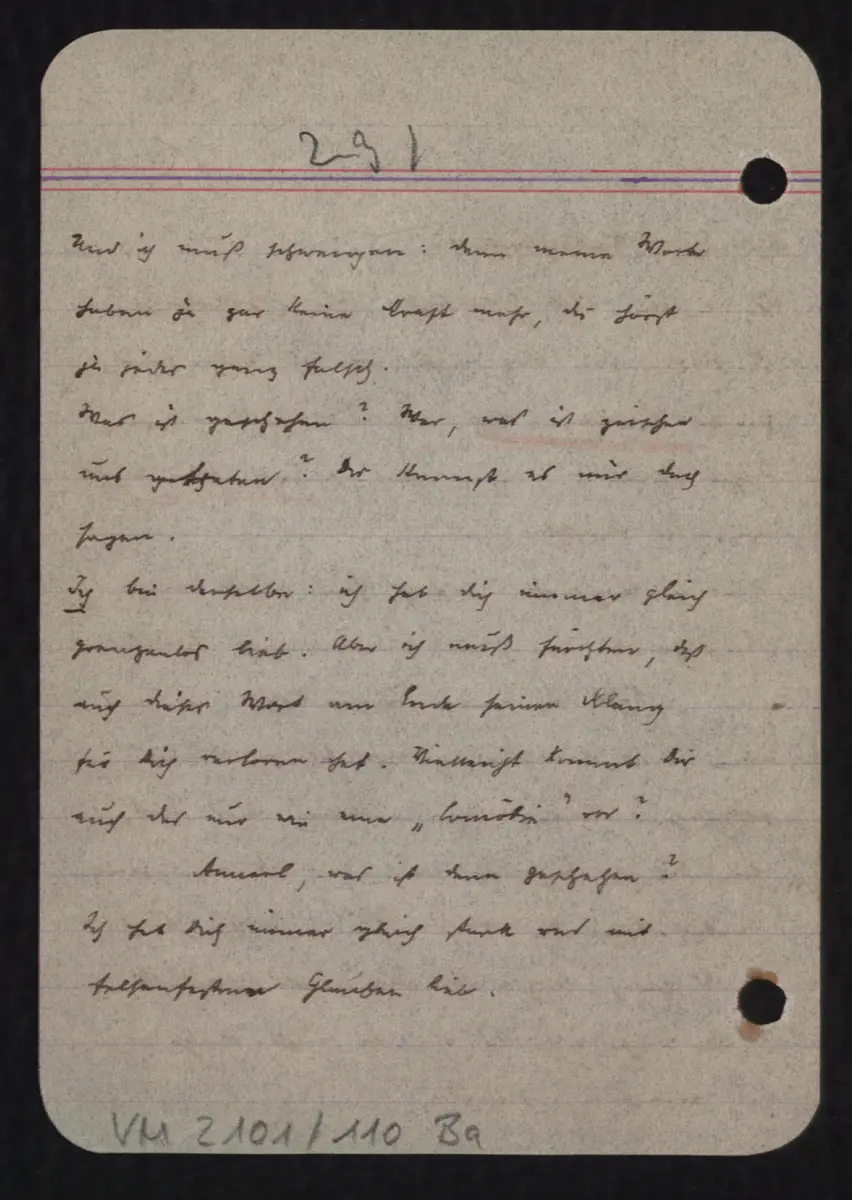 291
Und ich muß schweigen: denn meine Worte
haben ja gar keine Kraft mehr, du hörst
ja jedes ganz falsch.
Was ist geschehen? Wer, was ist zwischen
uns getreten? Du kannst es mir doch
sagen.
Ich bin derselbe: ich hab dich immer gleich
grenzenlos lieb. Aber ich muß fürchten, daß
auch dieses Wort am Ende seinen Klang
für Dich verloren hat. Vielleicht kommt Dir
auch das nur wie eine „Comödie" vor?
Annerl, was ist denn geschehen?
Ich hab Dich immer gleich stark und mit
felsenfestem Glauben lieb.
VM 2101/110 Ba